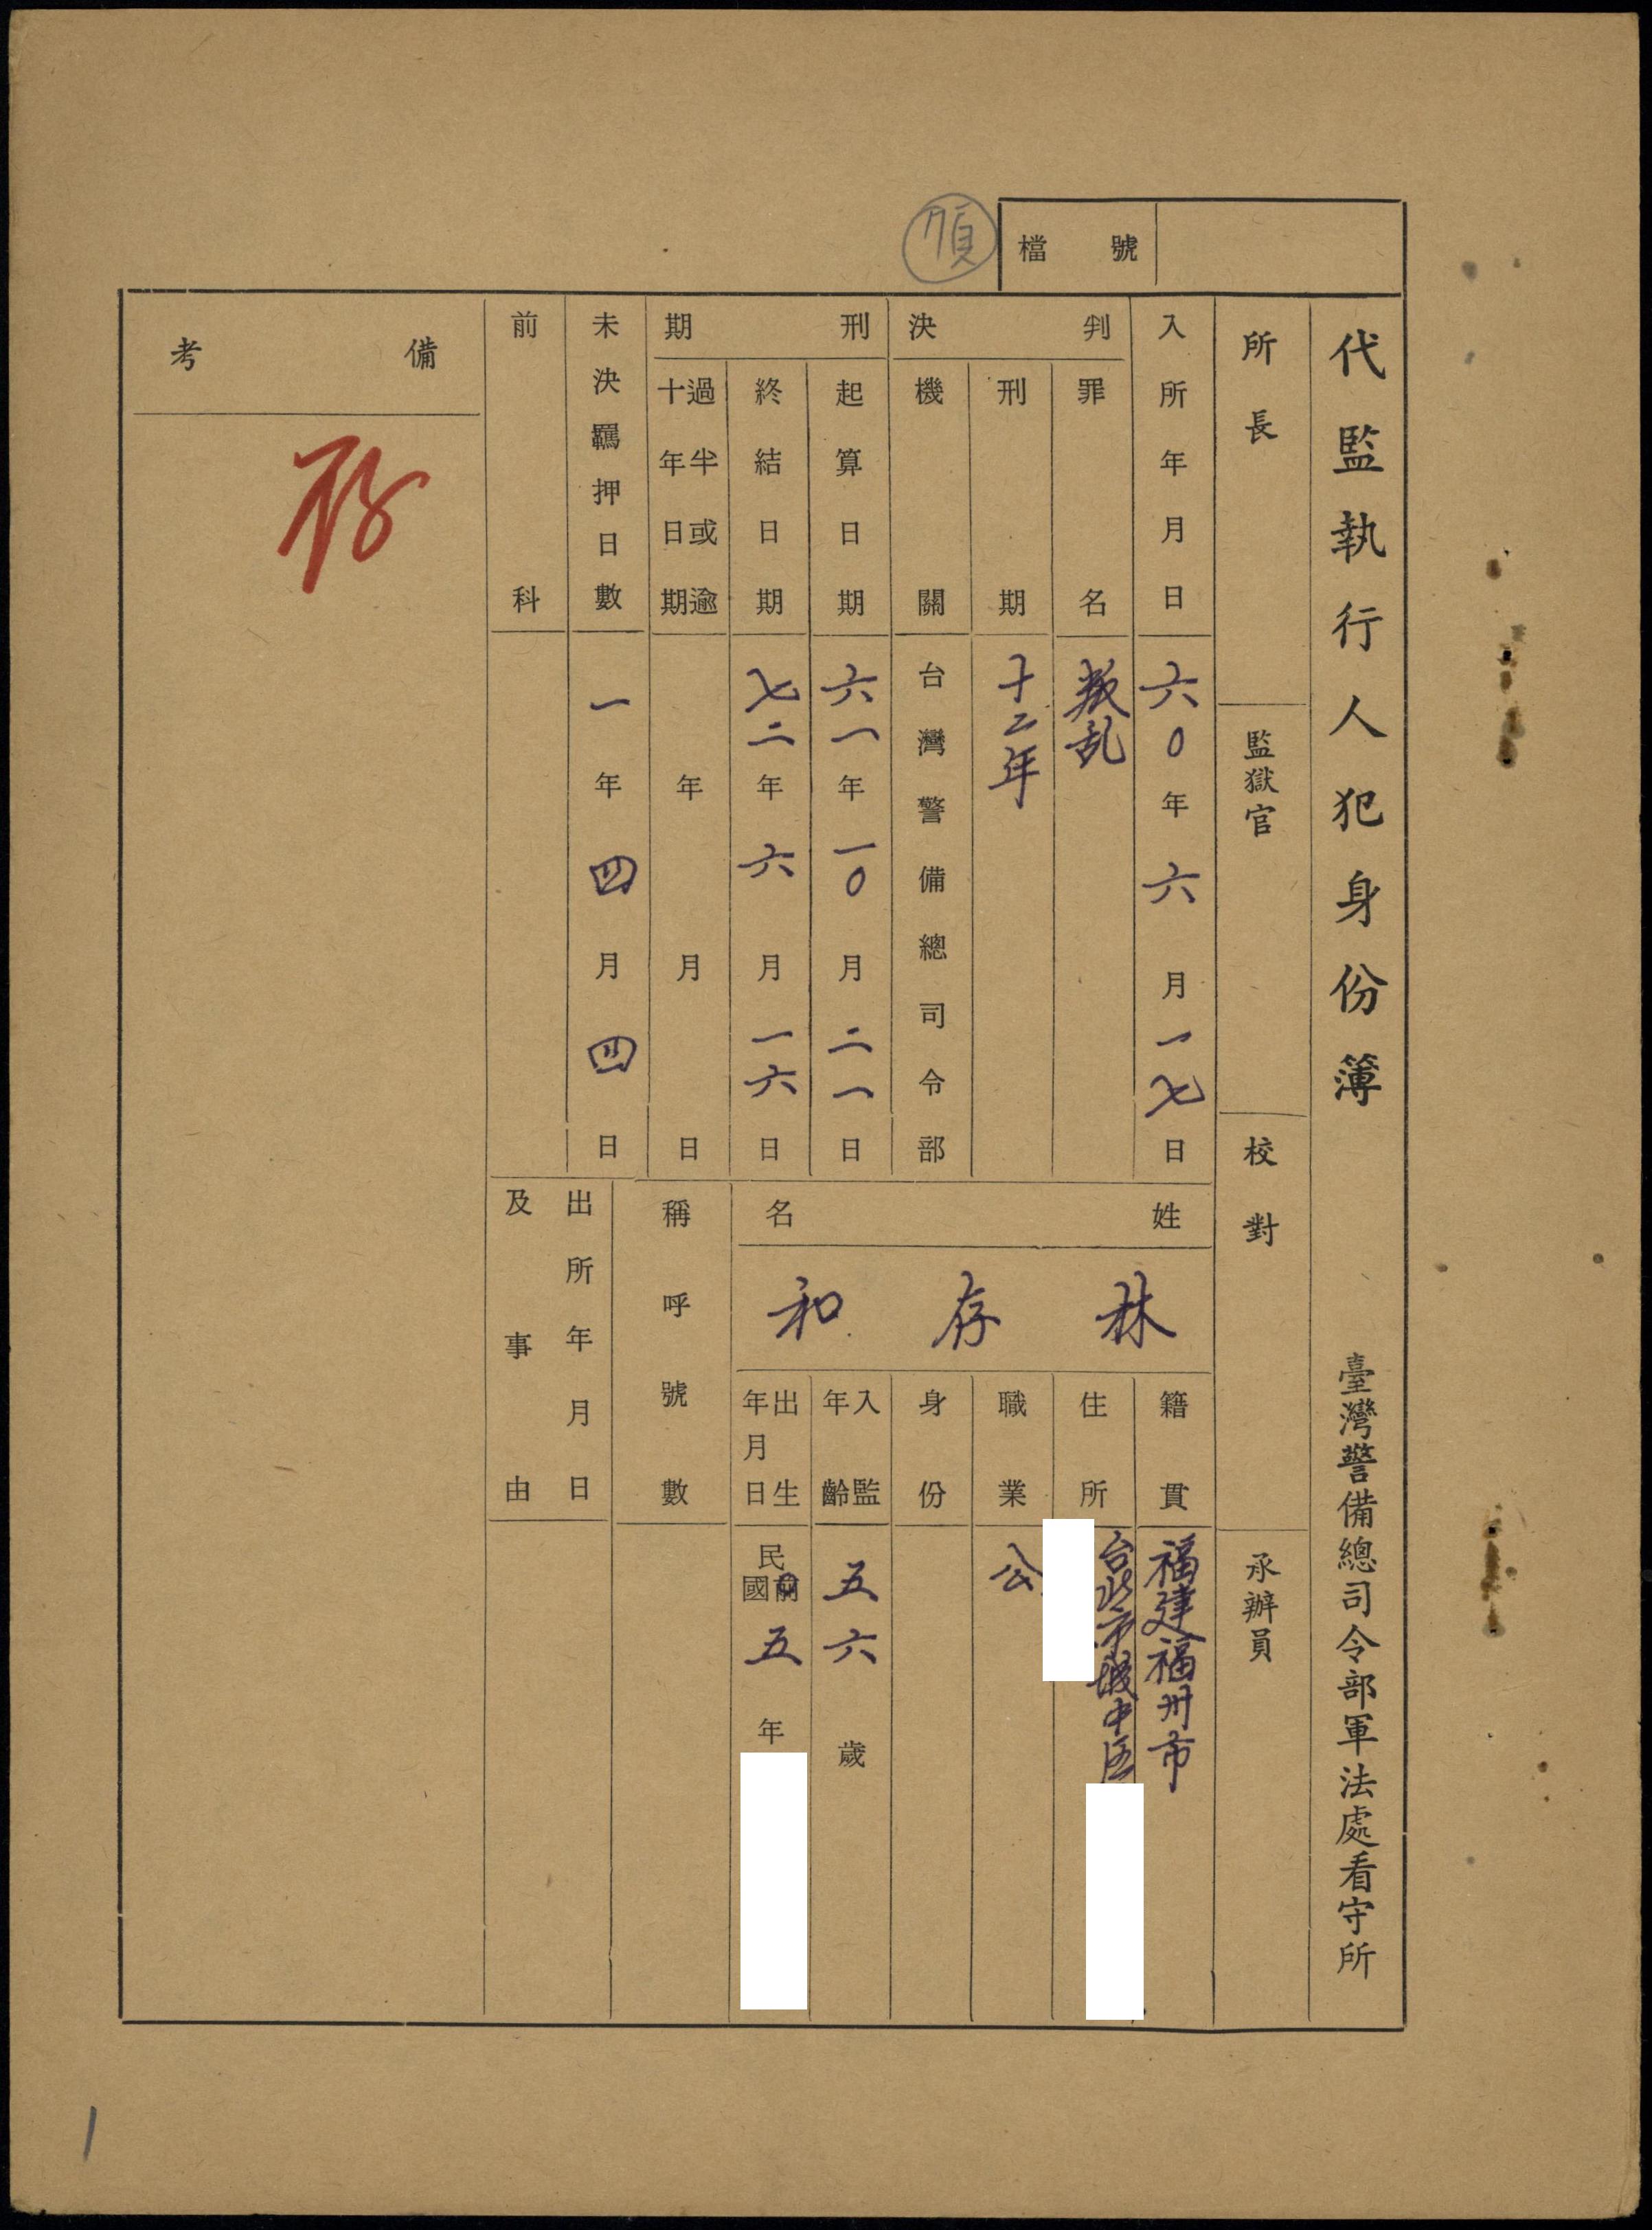 檔號
順
代監執行人犯身份簿 臺灣警備總司令部軍法處看守所
所長 監獄官 校對 承辦員
入所年月日 六〇年六月一七日
判決
罪名 叛乱
刑期 十二年
機關 台灣警備總司令部
刑期
起算日期 六一年一〇月二一日
終結日期 七二年六月一六日
過半或逾十年日期 年 月 日
未決羈押日數 一年四月四日
前科
姓名
林存和
籍貫 福建福州市
住所 台北市城中区
職業 公
身份
入監年齡 五六歲
出生年月日 民國前五年
稱呼號數
出所年月日及事由
備考
存
1